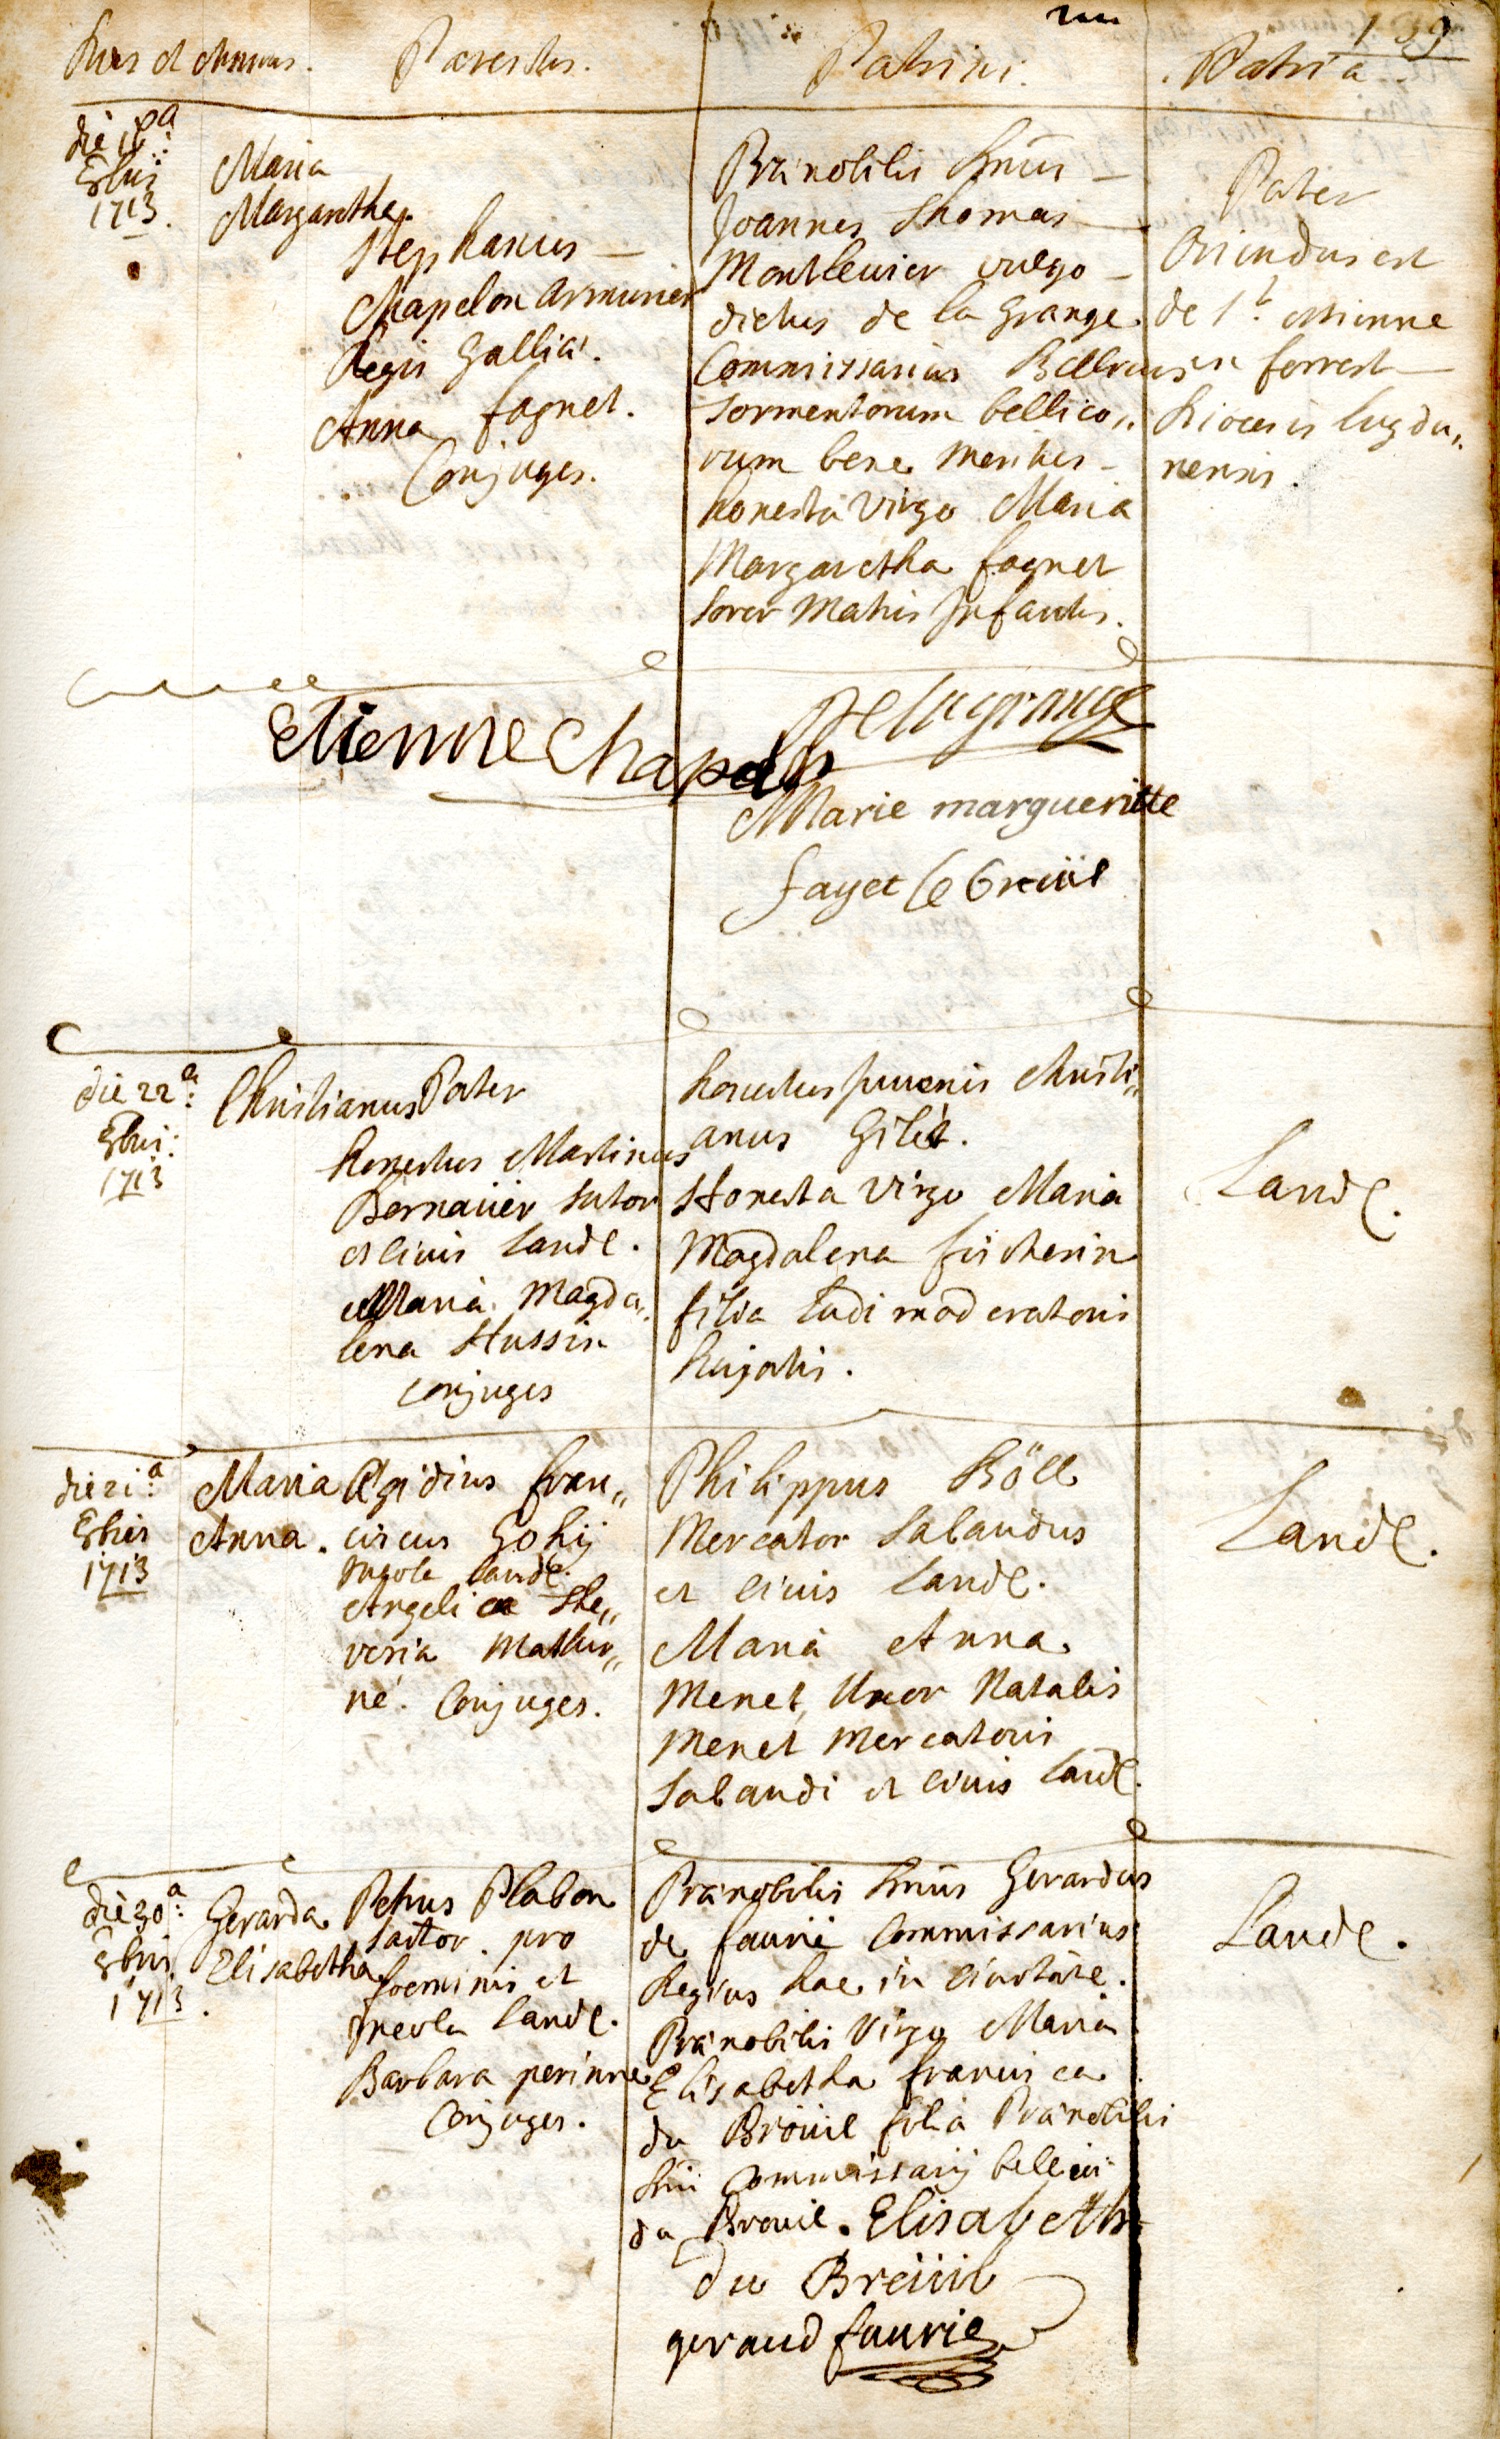 139
Parentes.
Patrini.
Patria.
die 16a:
9bris
1713.
Maria
Margaretha.
Stephanus
Chapelon Armurier
Regis Galliæ.
Anna fagnet.
Conjuges.
Prænobilis
Joannes Thomas
Montleuier vulgo
dictus de la Grange.
Commissarius Bellicus
tormentorum bellico„
rum bene meritus
honesta Virgo Maria
Margaretha fagnet
soror Matris Infantis.
Pater
Oriundus est
de St. Etienne
en forrest
Diocesis lugdu„
nensis.
Etienne Chapelon
Delagrange
Marie margueritte
fayet le breüil
die 22a:
9bris:
1713
Christianus
Pater
honestus Martinus
Bernauer sutor
et civis Landl.
Maria Magda„
lena Hussin
conjuges
honestus Juuenis Christi„
anus Gilet.
Honesta Virgo Maria
Magdalena fischerin
filia ludi moderatoris
hujatis.
Landl.
die 21a:
9bris
1713
Maria
Anna.
Ægidius fran„
ciscus Gohij
Incola Landl.
Angelica The„
resia Mathur„
né. Conjuges.
Philippus Köll
Mercator Sabaudus
et civis Landl.
Maria Anna
Menet, Uxor Natalis
Menet Mercatoris
Sabaudi et civis Landl.
Landl.
die 30a:
9bris
1713.
Gerarda
Elisabetha
Petrus Plabon
sartor pro
foeminis et
Incola Landl.
Barbara perinne
Conjuges.
Prænobilis Gerardus
de faurie Commissarius
Regius hac in civitate.
Prænobilis Virgo Maria
Elisabetha francisca
du Bröüil filia Prænobilis
Dni Commissarij bellici
du Breuil. Elisabeth
du Breüil
geraud faurie
Landl.